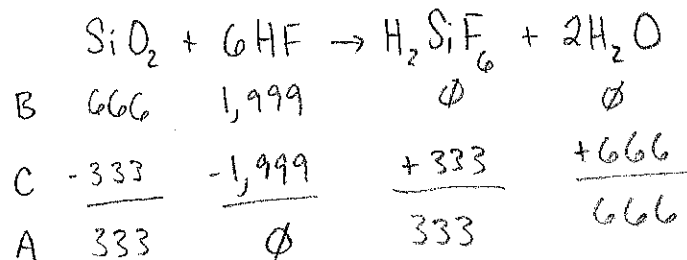 SiO₂ + 6HF → H₂SiF₆ + 2H₂O
B 666 1,999 ∅ ∅
C -333 -1,999 +333 +666
A 333 ∅ 333 666